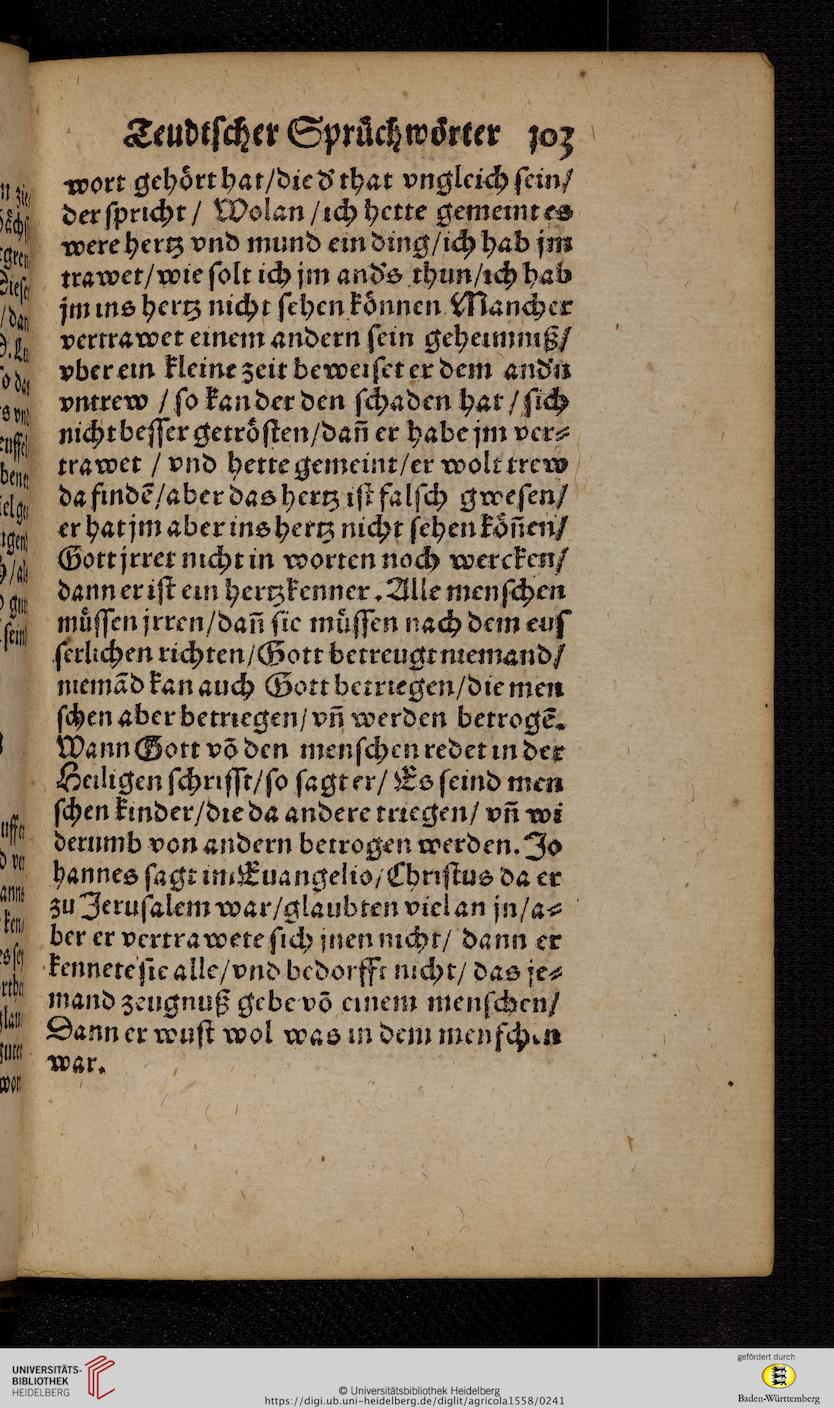 Teudtſcher Sprüchwörter 103
wort gehört hat/die d' that vngleich ſein/
der ſpricht / Wolan /ich hette gemeint es
were hertz vnd mund ein ding/ich hab jm
trawet/wie ſolt ich jm and's thun/ich hab
jm ins hertz nicht ſehen können. Mancher
vertrawet einem andern ſein geheimniß/
vber ein kleine zeit beweiſet er dem and'n
vntrew / ſo kan der den ſchaden hat / ſich
nicht beſſer getröſten/dañ er habe jm ver⸗
trawet / vnd hette gemeint/er wolt trew
da findē/aber das hertz iſt falſch gweſen/
er hat jm aber ins hertz nicht ſehen köñen/
Gott jrret nicht in worten noch wercken/
dann er iſt ein hertzkenner. Alle menſchen
müſſen jrren/dañ ſie müſſen nach dem euſ
ſerlichen richten/Gott betreugt niemand/
niemād kan auch Gott betriegen/die men
ſchen aber betriegen/ vñ werden betrogē.
Wann Gott võ den menſchen redet in der
Heiligen ſchrifft/ſo ſagt er/ Es ſeind men
ſchen kinder/die da andere triegen/ vñ wi
derumb von andern betrogen werden. Jo
hannes ſagt im Euangelio/Chriſtus da er
zu Jeruſalem war/glaubten viel an jn/a⸗
ber er vertrawete ſich jnen nicht/ dann er
kennete ſie alle/vnd bedorfft nicht/ das je⸗
mand zeugnuß gebe võ einem menſchen/
Dann er wuſt wol was in dem menſchen
war.
UNIVERSITÄTS-
BIBLIOTHEK
HEIDELBERG
© Universitätsbibliothek Heidelberg
https://digi.ub.uni-heidelberg.de/diglit/agricola1558/0241
gefördert durch
Baden-Württemberg